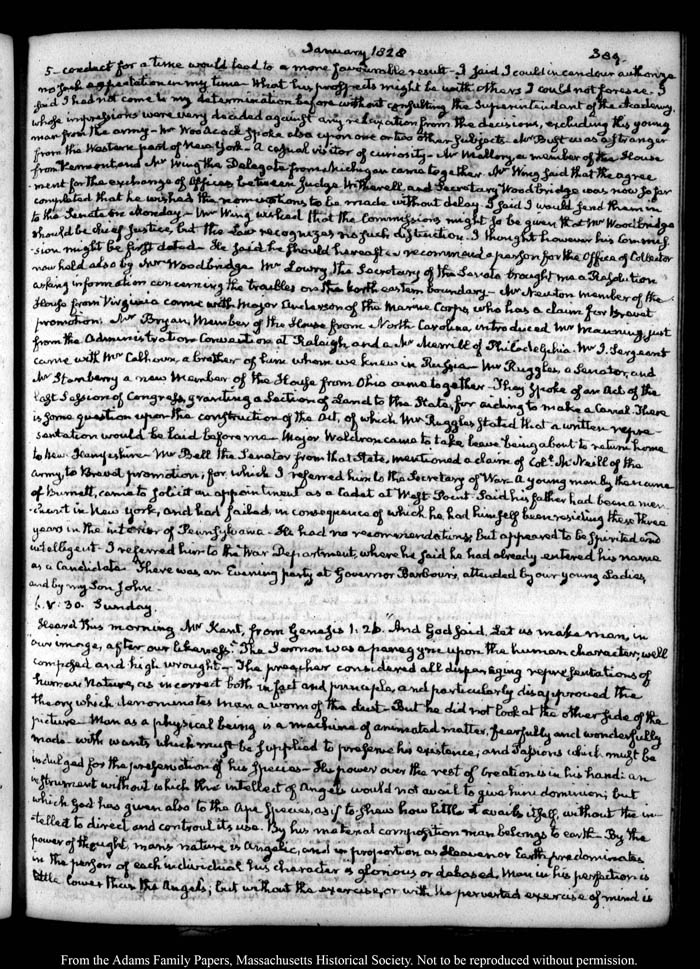 January 1828
389.
5- conduct for a time would lead to a more favourable result - I said I could in candour authorize
no such expectation in my time - What his prospects might be with others I could not foresee. I
said I had not come to my determination before without consulting the Superintendant of the Academy,
whose impressions were very decided against any relaxation from the decision, excluding this young
man from the army - Mr Woodcock spoke also upon one or two other subjects - Mr Bust was a stranger
from the Western part of New York - A casual visitor of curiosity - Mr Mallory, a member of the House
from Vermont and Mr Wing the Delegate from Michigan came together - Mr Wing said that the agree
ment for the exchange of Offices between Judge Witherell, and Secretary Woodbridge was now so far
completed that he wished the nominations to be made without delay. I said I would send them in
to the Senate on Monday - Mr Wing wished that the Commissions might so be given that Mr Woodbridge
should be chief Justice, but the Law recognizes no such distinction. I thought however his Commis
-sion might be first dated - He said he should hereafter recommend a person for the Office of Collector
now held also by Mr Woodbridge. Mr Lowry, the Secretary of the Senate brought me a Resolution
asking information concerning the troubles on the North eastern boundary - Mr Newton member of the
House from Virginia came with Major Anderson of the Marine Corps, who has a claim for Brevet
promotion. Mr Bryan, Member of the House from North Carolina, introduced Mr Manning, just
from the Administration Convention at Raleigh and a Mr Merrill of Philadelphia. Mr J. Sergeant
came with Mr Calhoun, a brother of him whom we knew in Russia - Mr Ruggles, a Senator, and
Mr Stanberry a new Member of the House from Ohio came together - They spoke of an Act of the
last Session of Congress, granting a Section of Land to the State, for aiding to make a Canal. There
is some question upon the construction of the Act, of which Mr Ruggles stated that a written repre-
sentation would be laid before me - Major Waldron came to take leave being about to return home
to New Hampshire - Mr Bell the Senator from that State, mentioned a claim of Colt. McNeill of the
Army, to Brevet promotion; for which I referred him to the Secretary of War. A young man by the name
of Burnett, came to solicit an appointment as a Cadet at West Point. Said his father had been a mer-
chant in New York, and had failed, in consequence of which he had himself been residing these three
years in the interior of Pennsylvania - He had no recommendations, but appeared to be spirited and
intelligent - I referred him to the War Department, where he said he had already entered his name
as a Candidate. There was an Evening party at Governor Barbour's, attended by our young Ladies,
and by my Son John -
6. V:30. Sunday.
Heard this morning Mr Kent, from Genesis 1. 26. "And God said, Let us make man, in
"our image, after our likeness." The Sermon was a panegyric upon the human character, well
composed and high wrought - The preacher considered all disparaging representations of
human Nature, as incorrect both in fact and principle, and particularly disapproved the
theory which denominates man a worm of the dust - But he did not look at the other side of the
picture - Man as a physical being is a machine of animated matter, fearfully and wonderfully
made - with wants which must be supplied to preserve his existence; and Passions which must be
indulged for the preservation of his Species - His power over the rest of Creation is in his hand: an
instrument without which the intellect of Angels would not avail to give him dominion; but
which God has given also to the Ape Species, as if to shew how little it avails itself, without the in-
tellect to direct and controul its use. By his material composition man belongs to earth - By the
power of thought, mans nature is Angelic, and in proportion as Heaven or Earth predominates
in the person of each individual his character is glorious or debased. Man in his perfection is
little lower than the Angels; but without the exercise, or with the perverted exercise of mind is
From the Adams Family Papers, Massachusetts Historical Society. Not to be reproduced without permission.